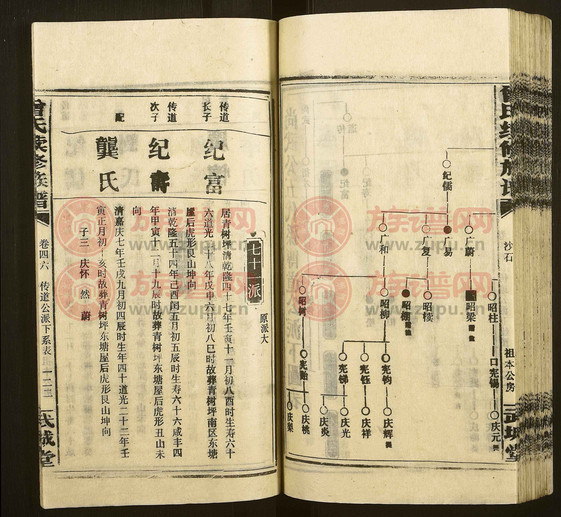 曾氏续修族谱
沙石
祖本公房
武城堂
纪儒
广蔚
广易
广复
广和
昭柱
昭梁
昭桉
昭柳
昭树
宪锡
宪钧
宪钰
宪锑
庆元
庆辉
庆祥
庆光
庆炎
庆桃
庆梁
七十派
原派大
传道
长子
纪富
居青树坪清乾隆四十七年壬寅十一月初八酉时生寿六十
六道光二十八年戊申六月初八巳时故葬青树坪南区东塘
屋后虎形艮山坤向
传道
次子
纪寿
清乾隆五十四年己酉闰五月初五辰时生寿六十六咸丰四
年甲寅十二月十九辰时故葬青树坪东塘屋后虎形丑山未
向
配
龚氏
清嘉庆七年壬戌九月初四辰时生年四十道光二十二年壬
寅正月初一亥时故葬青树坪东塘屋后虎形艮山坤向
子三 庆怀 然 蔚
曾氏续修族谱
卷四六
传道公派下系表
一二三
武城堂
族谱网
www.zupu.cn
族谱网
www.zupu.cn